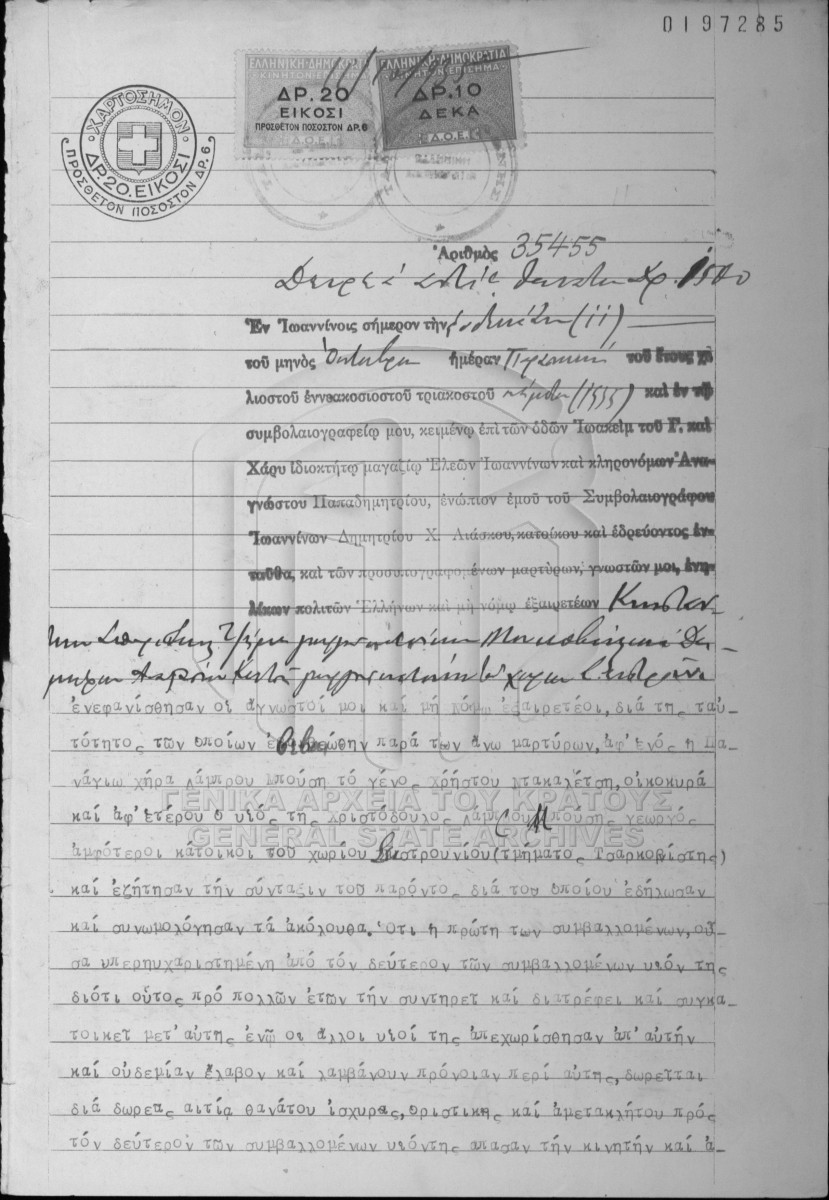 0197285
ΕΛΛΗΝΙΚΗ ΔΗΜΟΚΡΑΤΙΑ
ΚΙΝΗΤΟΝ ΕΠΙΣΗΜΑ
ΔΡ. 20
ΕΙΚΟΣΙ
ΠΡΟΣΘΕΤΟΝ ΠΟΣΟΣΤΟΝ ΔΡ. 6
ΕΛΛΗΝΙΚΗ ΔΗΜΟΚΡΑΤΙΑ
ΚΙΝΗΤΟΝ ΕΠΙΣΗΜΑ
ΔΡ. 10
ΔΕΚΑ
ΧΑΡΤΟΣΗΜΟΝ
ΔΡ. 20. ΕΙΚΟΣΙ
ΠΡΟΣΘΕΤΟΝ ΠΟΣΟΣΤΟΝ ΔΡ. 6
Ἀριθμὸς 35455
Δωρεά αιτία θανάτου Δρ. 1500
Ἐν Ἰωαννίνοις σήμερον τὴν ἑνδεκάτην (11)
τοῦ μηνὸς Ὀκτωβρίου ἡμέραν Παρασκευή τοῦ ἔτους χι
λιοστοῦ ἐννεακοσιοστοῦ τριακοστοῦ πέμπτου (1935) καὶ ἐν τῷ
συμβολαιογραφείῳ μου, κειμένῳ ἐπὶ τῶν ὁδῶν Ἰωακεὶμ τοῦ Γ. καὶ
Χάρυ ἰδιοκτήτῳ μαγαζίῳ Ἐλεῶν Ἰωαννίνων καὶ κληρονόμων Ἀνα-
γνώστου Παπαδημητρίου, ἐνώπιον ἐμοῦ τοῦ Συμβολαιογράφου
Ἰωαννίνων Δημητρίου Χ. Λιάσκου, κατοίκου καὶ ἑδρεύοντος ἐν-
ταῦθα, καὶ τῶν προσυπογραφομένων μαρτύρων, γνωστῶν μοι, ἐνη-
λίκων πολιτῶν Ἑλλήνων καὶ μὴ νόμῳ ἐξαιρετέων Κωνσταν-
ἐνεφανίσθησαν οἱ ἄγνωστοί μοι καί μή νόμῳ ἐξαιρετέοι, διά της ταυ-
τότητος τῶν ὁποίων ἐβεβαιώθην παρά των ἄνω μαρτύρων, ἀφ' ἑνός ἡ Πα-
νάγιω χήρα Λάμπρου Μπούση τό γένος Χρήστου Ντακαλέτση, οἰκοκυρά
καί ἀφ' ἑτέρου ὁ υἱός της Χριστόδουλος Λάμπρου Μπούσης γεωργός
ἀμφότεροι κάτοικοι τοῦ χωρίου Σιστρουνίου (τμήματος Τσαρκοβίστης)
καί ἐζήτησαν τήν σύνταξιν τοῦ παρόντος διά του ὁποίου ἐδήλωσαν
καί συνωμολόγησαν τά ἀκόλουθα. Ὅτι ἡ πρώτη των συμβαλλομένων, οὖ-
σα ὑπερηυχαριστημένη ἀπό τόν δεύτερον τῶν συμβαλλομένων υἱόν της
διότι οὗτος πρό πολλῶν ἐτῶν τήν συντηρεῖ καί διατρέφει καί συγκα-
τοικεῖ μετ' αὐτης ἐνῷ οἱ ἄλλοι υἱοί της ἀπεχωρίσθησαν ἀπ' αὐτήν
καί οὐδεμίαν ἔλαβον καί λαμβάνουν πρόνοιαν περί αὐτης, δωρεῖται
διά δωρεας αἰτίᾳ θανάτου ἰσχυρας, ὁριστικης καί ἀμετακλήτου πρός
τόν δεύτερον τῶν συμβαλλομένων υἱόντης ἅπασαν τήν κινητήν καί ἀ-
ΓΕΝΙΚΑ ΑΡΧΕΙΑ ΤΟΥ ΚΡΑΤΟΥΣ
GENERAL STATE ARCHIVES